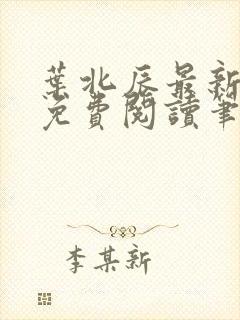 葉北辰最新
免費閱讀筆
李某新